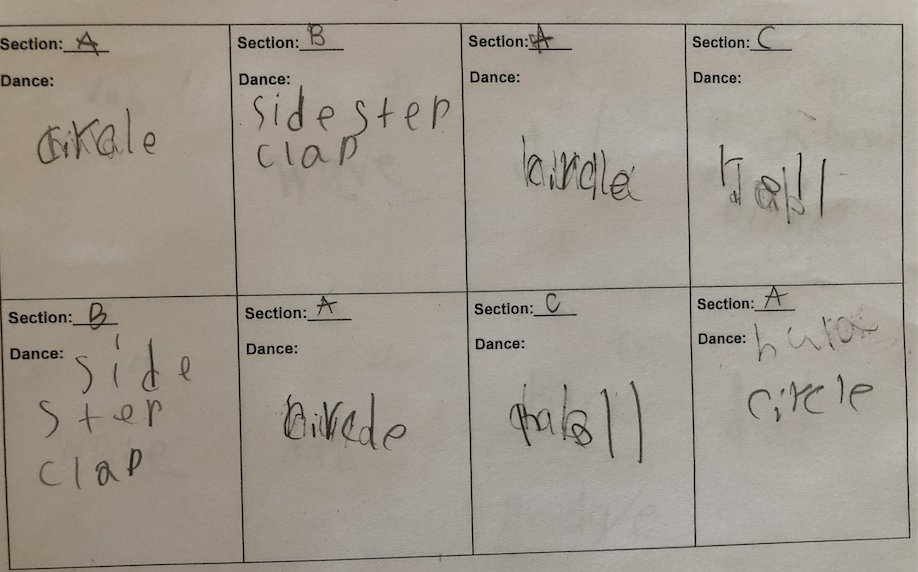 Section: A
Dance:
Section: B
Dance:
side step
clap
Section: A
Dance:
Section: C
Dance:
Section: B
Dance: side
step
clap
Section: A
Dance:
Section: C
Dance:
Section: A
Dance:
circle